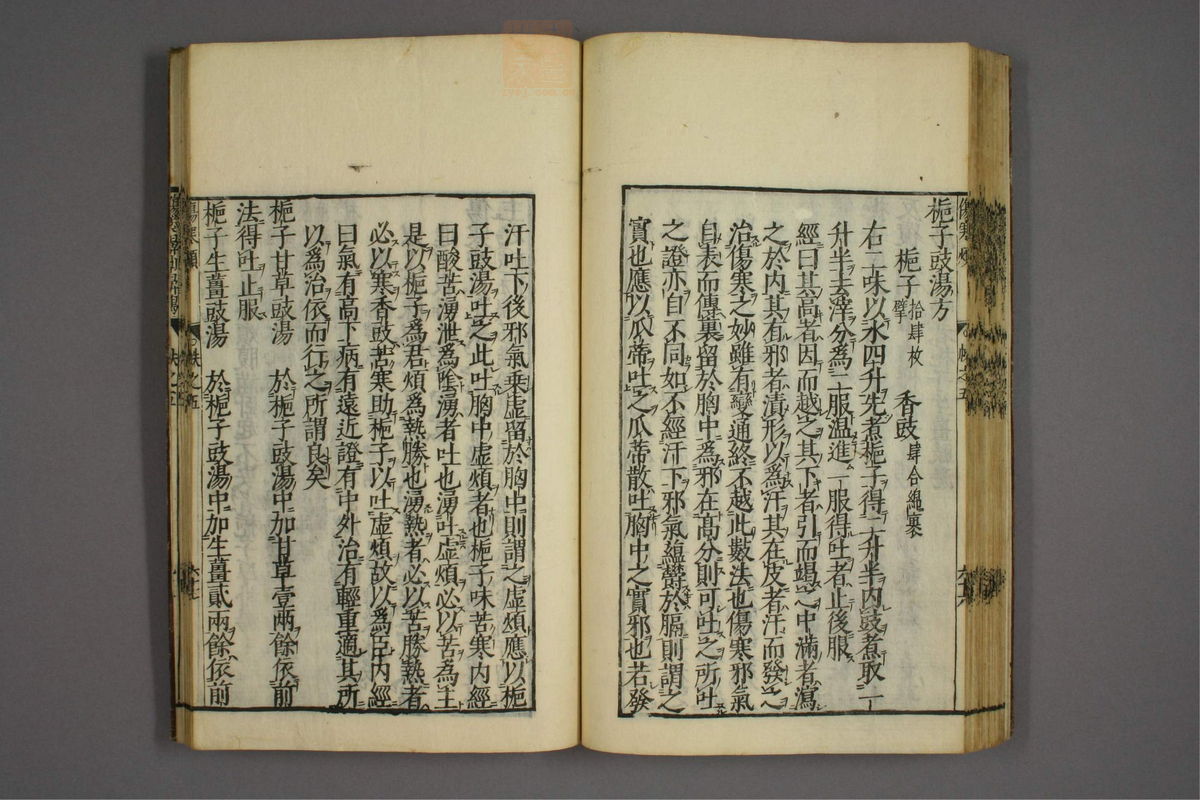 梔子豉湯方
梔子 拾肆枚擘 香豉 肆合綿裹
右二味以水四升先煮梔子得二升半內豉煮取一
升半去滓分為二服温進一服得吐者止後服
經曰其高者因而越之其下者引而竭之中滿者瀉
之於内其有邪者漬形以為汗其在皮者汗而發之
治傷寒之妙雖有變通終不越此數法也傷寒邪氣
自表而傳裏留於胸中為邪在高分則可吐之所吐
之證亦自不同如不經汗下邪氣藴欝於膈則謂之
實也應以瓜蒂吐之瓜蒂散吐胸中之實邪也若發
汗吐下後邪氣乗虚留於胸中則謂之虚煩應以梔
子豉湯吐之此吐胸中虚煩者也梔子味苦寒内經
曰酸苦湧泄為隂湧者吐也湧吐虚煩必以苦為主
是以梔子為君煩為熱勝也湧熱者必以苦勝熱者
必以寒香豉苦寒助梔子以吐虚煩故以為臣内經
曰氣有高下病有遠近證有中外治有輕重適其所
以為治依而行之所謂良矣
梔子甘草豉湯 於梔子豉湯中加甘草壹兩餘依前
法得吐止服
梔子生薑豉湯 於梔子豉湯中加生薑貳兩餘依前